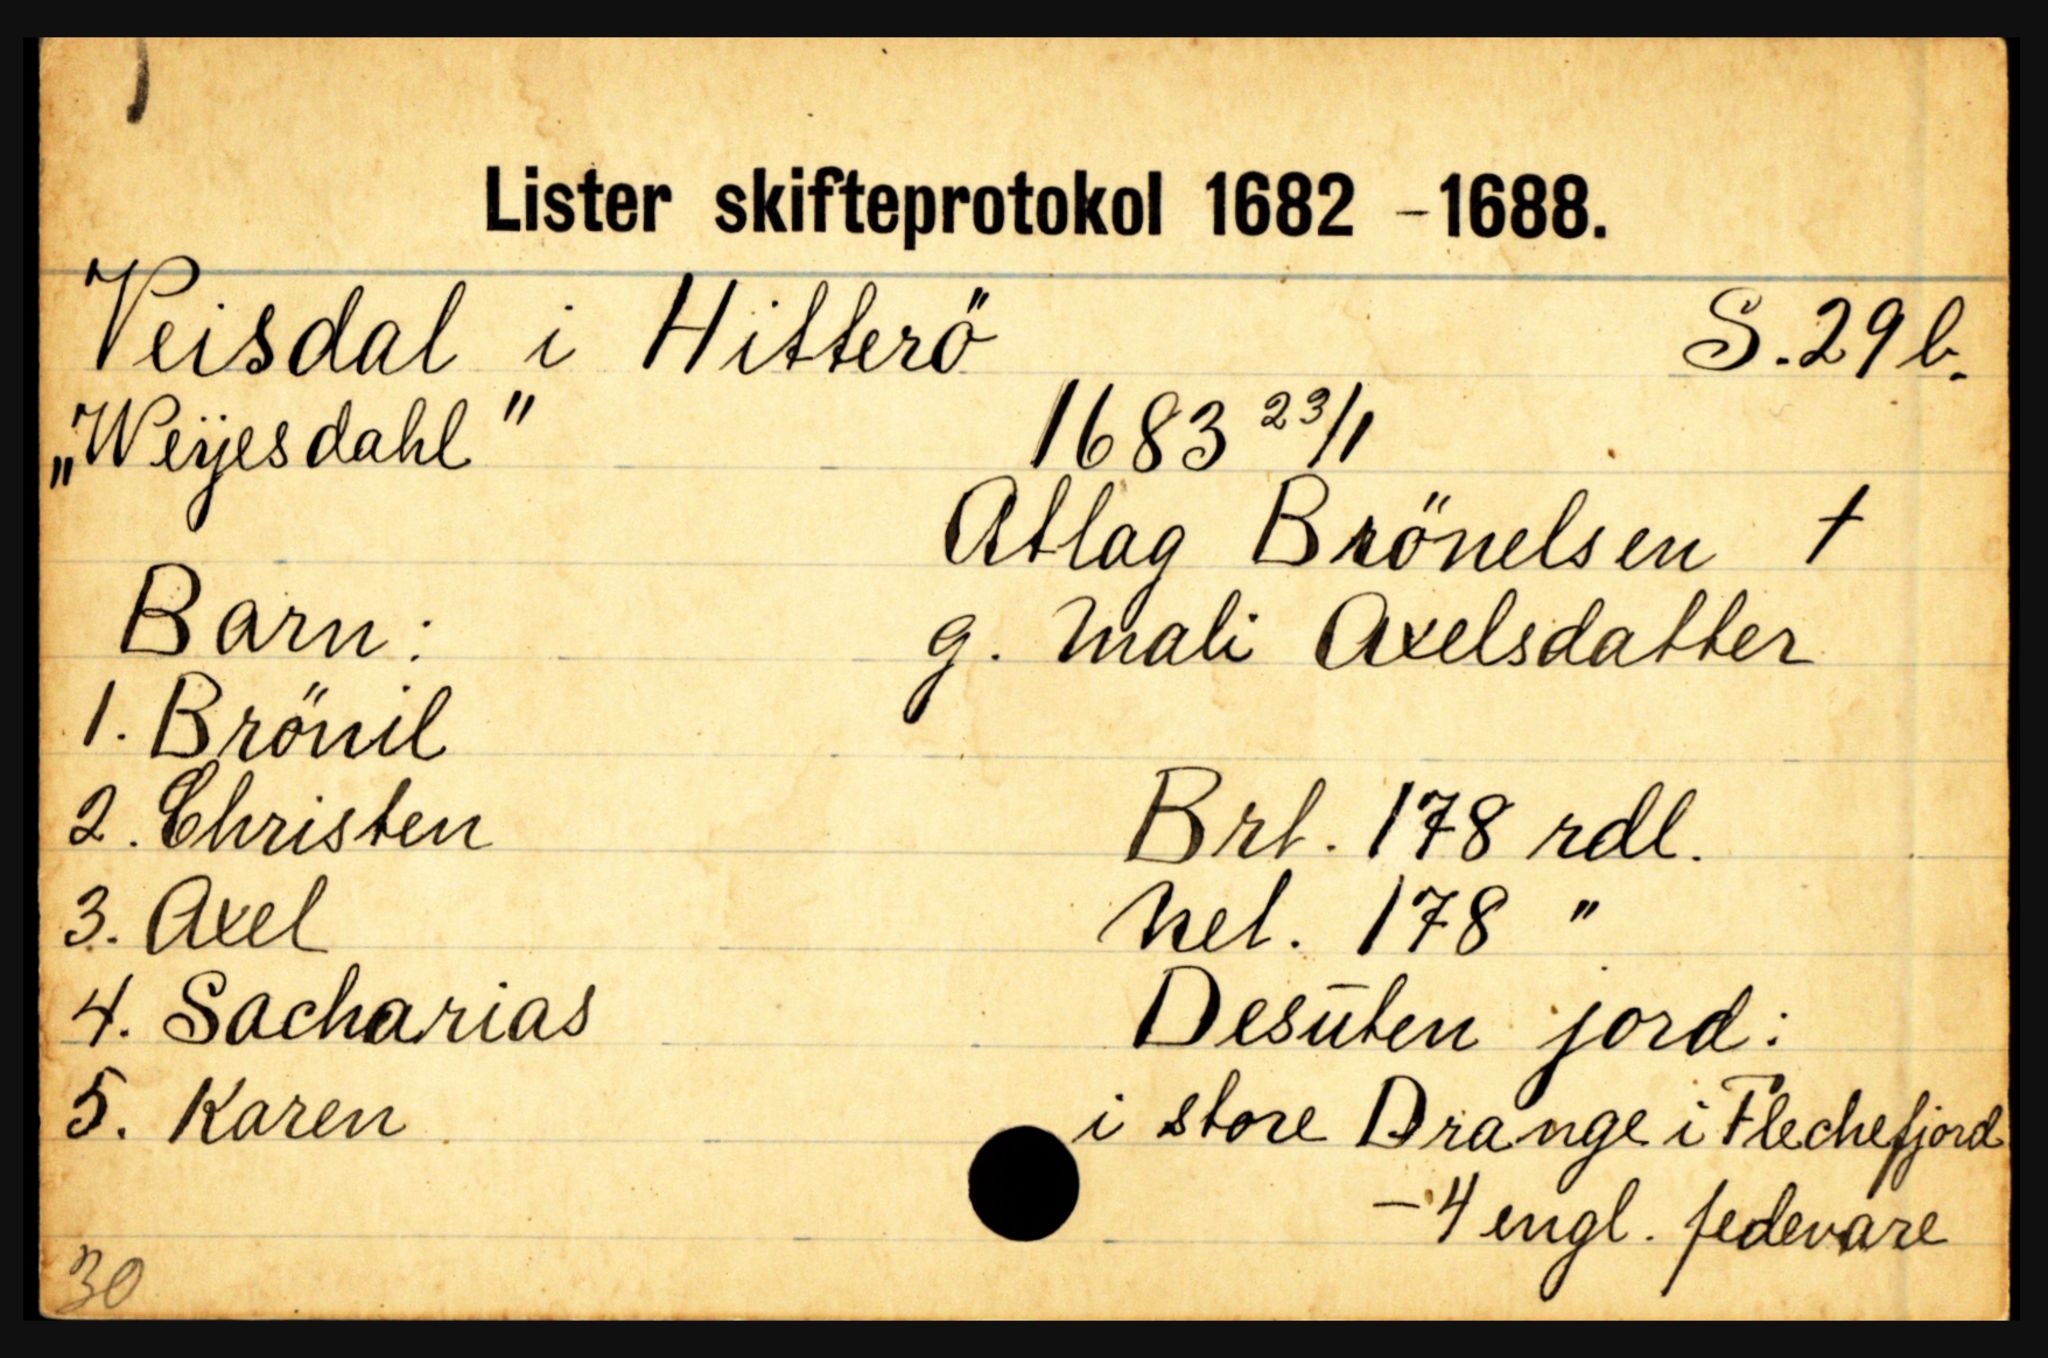 Lister skifteprotokol 1682 - 1688.
Veisdal i Hitterö S. 29 b.
„Weÿesdahl" 1683 23/1
Atlag Brönelsen †
Barn: g. Mali Axelsdatter
1. Brönil
2. Christen Brt. 178 rdl.
3. Axel Net. 178 "
4. Sacharias Desūten jord:
5. Karen i store Drange i Flechefjord
- 4 engl. fedevare
30